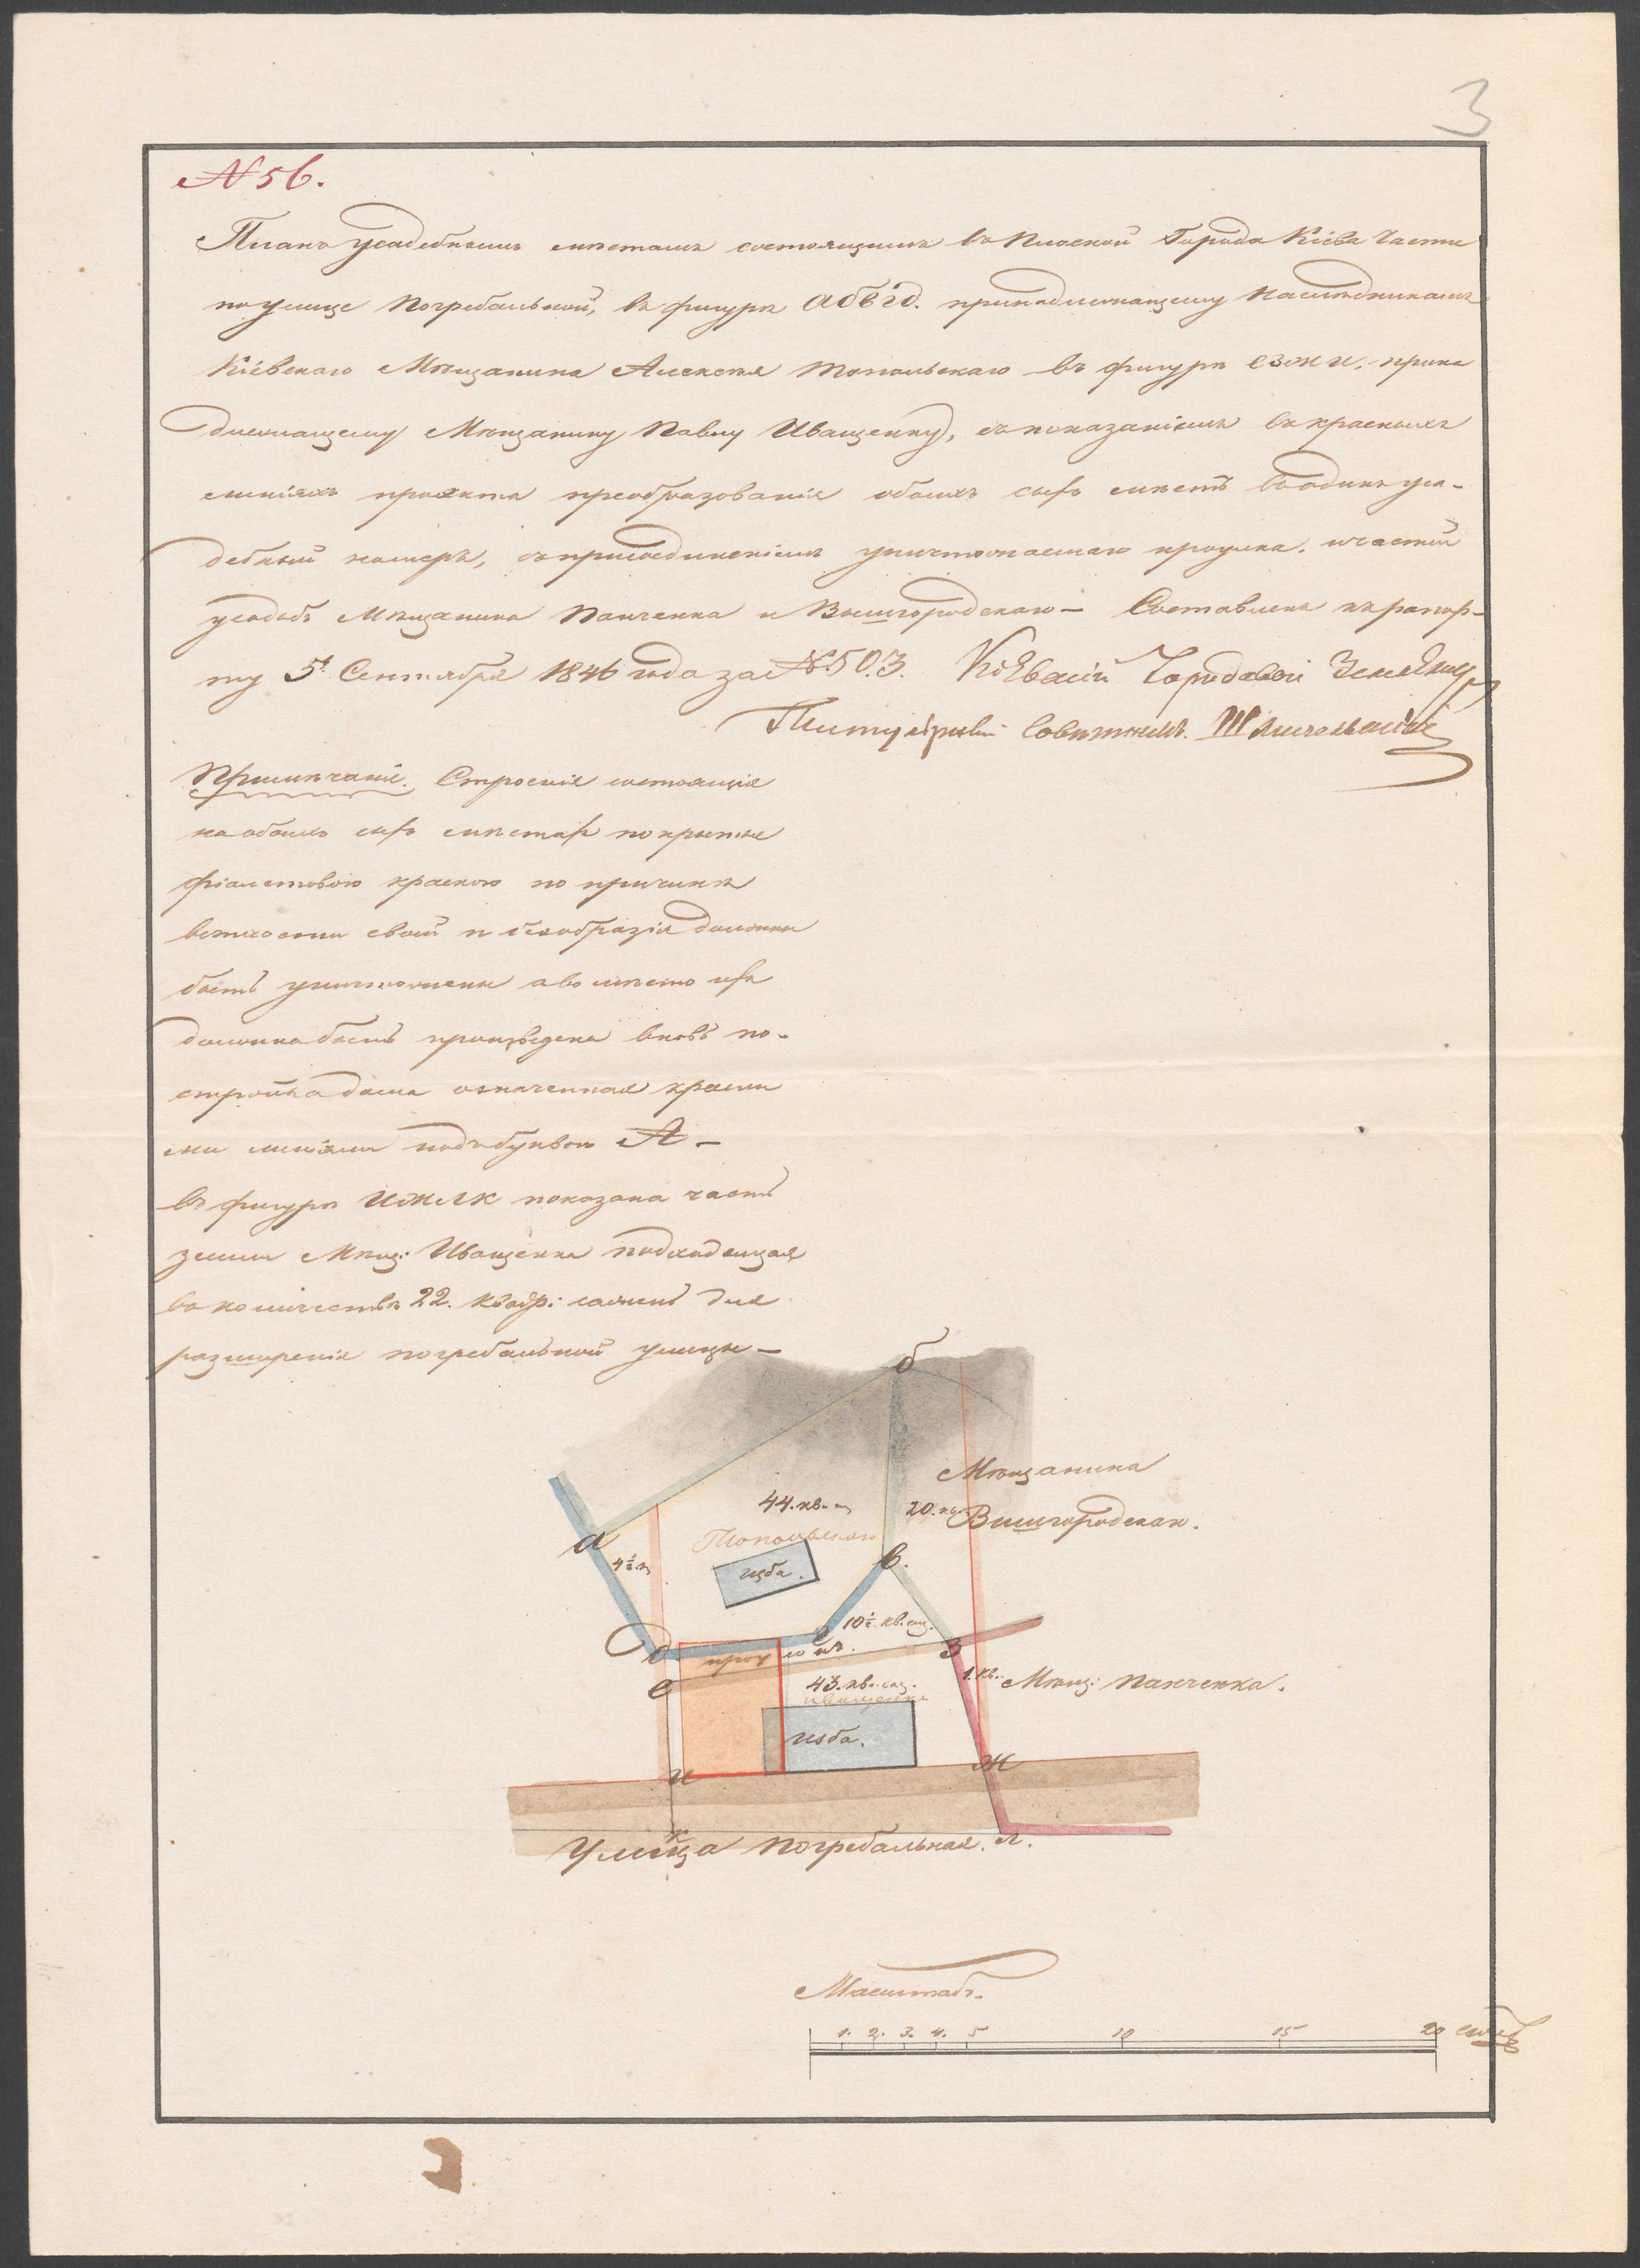 3
№ 56.
Планъ усадебнымъ местамъ состоящимъ въ Плоской Города Кіева Части
по улице Погребальной, въ фигурѣ абвгд. принадлежащему Наследникамъ
Кіевскаго Мѣщанина Алексѣя Топольскаго въ фигурѣ езжи, прина
длежащему Мѣщанину Павлу Иващенку, съ показаніемъ въ красныхъ
линіяхъ проэкта преобразованія обоихъ сихъ местъ въ одинъ уса-
дебный номеръ, съ присоединеніемъ уничтожаемаго проулка. и частей
усадьбъ Мѣщанина Панченка и Вышгородскаго — Составленъ къ рапор-
ту 5 Сентября 1846 года за № 503. Кіевскій Городовой Землемѣръ
Титулярный Советникъ
Примѣчаніе. Строенія состоящія
на обоихъ сихъ местахъ покрытые
фіолетовою краскою по причине
ветхости своей и безобразія должны
быть уничтожены а въ место ихъ
должна быть произведена вновь по-
стройка дома означенная красны
ми линіями подъ буквою А —
въ фигурѣ ижлк показана часть
земли Мѣщ: Иващенка подходящая
въ количествѣ 22. квадр: сажень для
разширенія погребальной улицы —
б
Мѣщанина
44. кв.
20. кв.
Вышгородскаго.
Топольскаго
а
в.
4½
изба.
10½ кв. саж.
д
г
проу локъ.
з
е
43. кв. саж.
1. кв.
Мѣщ: Панченка.
иващенка
изба.
и
ж
к
Улица Погребальная. л.
Масштабъ.
1. 2. 3. 4. 5 10 15 20 саж.